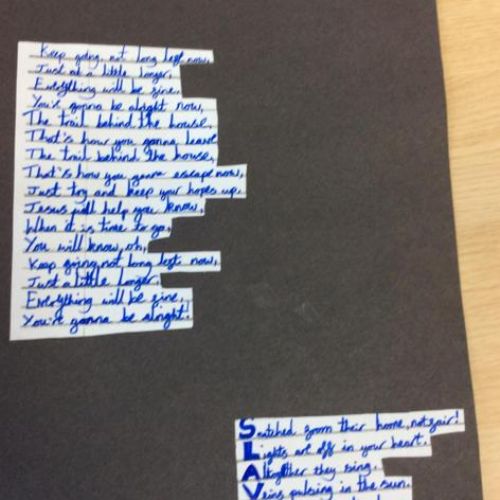 Keep going, not long left now,
Just at a little longer,
Everything will be fine,
You're gonna be alright now,
The trail behind the house,
That's how you gonna leave
The trail behind the house,
That's how you gonna escape now,
Just try and keep your hopes up.
Jesus will help you know,
When it is time to go,
You will know, oh,
Keep going, not long left now,
Just a little longer,
Everything will be fine,
You're gonna be alright!
Snatched from their home, not fair!
Lights are off in your heart.
Altogether they sing.
Veins pulsing in the sun.